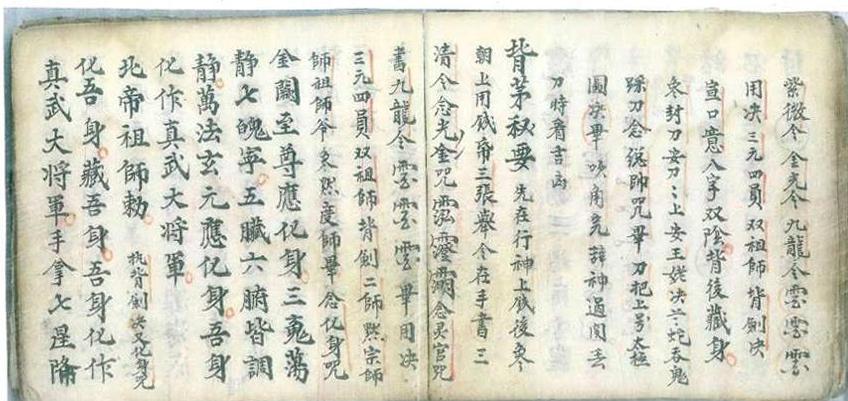 紫微令金光令九龍令雲雲雲
用决三元四員双祖師背劍决
宣口意八字双陰背後藏身
封刀安刀〻上安王姥决六蛇吞鬼
踩刀念総師咒畢刀把上号太極
圓决畢吹角完辞神過関去
刀時看吉凶
背茅秘要先在行神上戲後
朝上用錢帋三張舉令在手書三
清令念光金咒念灵官咒
書九龍令雲雲雲畢用决
三元四員双祖師背劍二師點宗師
師祖師爷點度師畢念化身咒
金闕至尊應化身三魂蕩
靜七魄寧五臟六腑皆調
靜萬法玄元應化身吾身
化作真武大将軍
北帝祖師勅执背劍决又化身咒
化吾身藏吾身吾身化作
真武大将軍手拿七星降